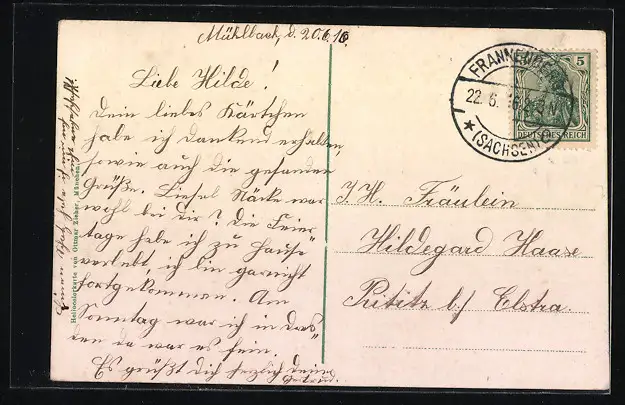 Mühlbach, d. 20.6.16.
Liebe Hilde!
Dein liebes Kärtchen
habe ich dankend erhalten,
sowie auch die gesanden
Grüße. Liesel Näcke war
wohl bei dir? Die Feier-
tage habe ich zu Hause
verlebt, ich bin garnicht
fortgekommen. Am
Sonntag war ich in
da war es fein.
Es grüßt Dich herzlich deine
Gertrud.
Heliocolorkarte von Ottmar Zieher, München
FRANKENBERG
22.6.16
★(SACHSEN)
5
DEUTSCHES REICH
J. H. Fräulein
Hildegard Haase
b/ Elstra.